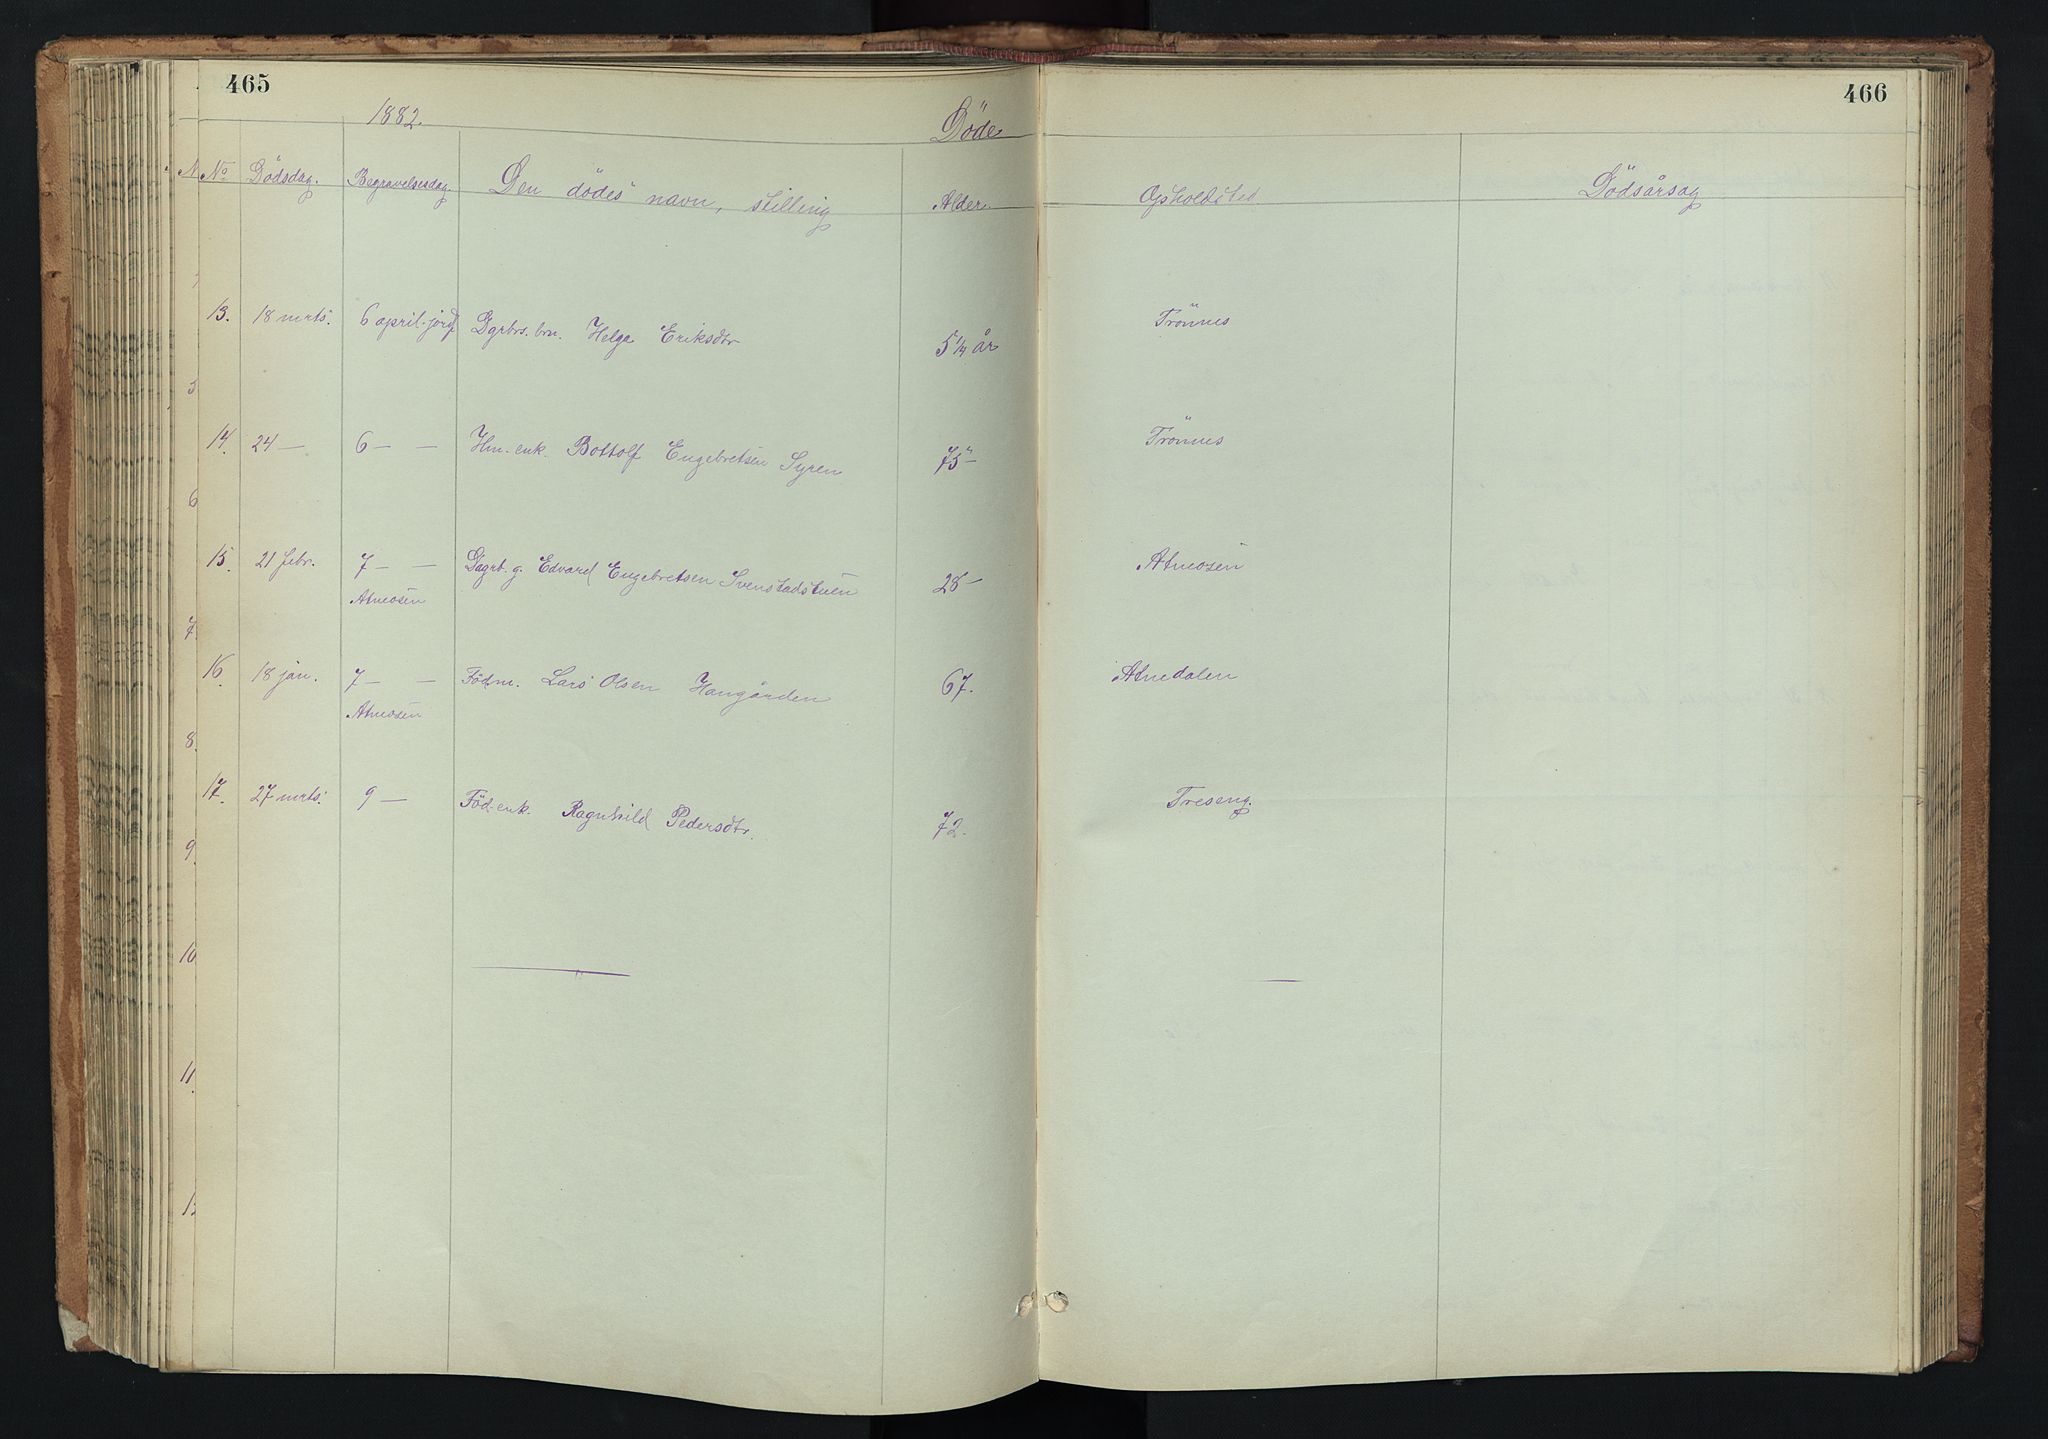 465
466
1882.
Döde
No
Dödsdag.
Begravelsesdag.
Den dödes navn, stilling
Alder.
Opholdsted
Dödsårsag
13. 18 mrts. 6 april. jordf Dgrbrs. brn. Helga Eriksdtr 5 1/4 år Trönnes
14. 24 — 6 — — Hm. enk. Bottolf Engebretsen Syren 75 — Trönnes
15. 21 febr. 7 — — Dagrb. g. Edvard Engebretsen Svenstadstuen 28 — Atneosen
Atneosen
16. 18 jan. 7 — — Födm. Lars Olsen Haugården 67. Atnedalen
Atneosen
17. 27 mrts. 9 — Föd-enk. Ragnhild Pedersdtr. 72. Treseng.
5
6
7.
8.
9.
10
11.